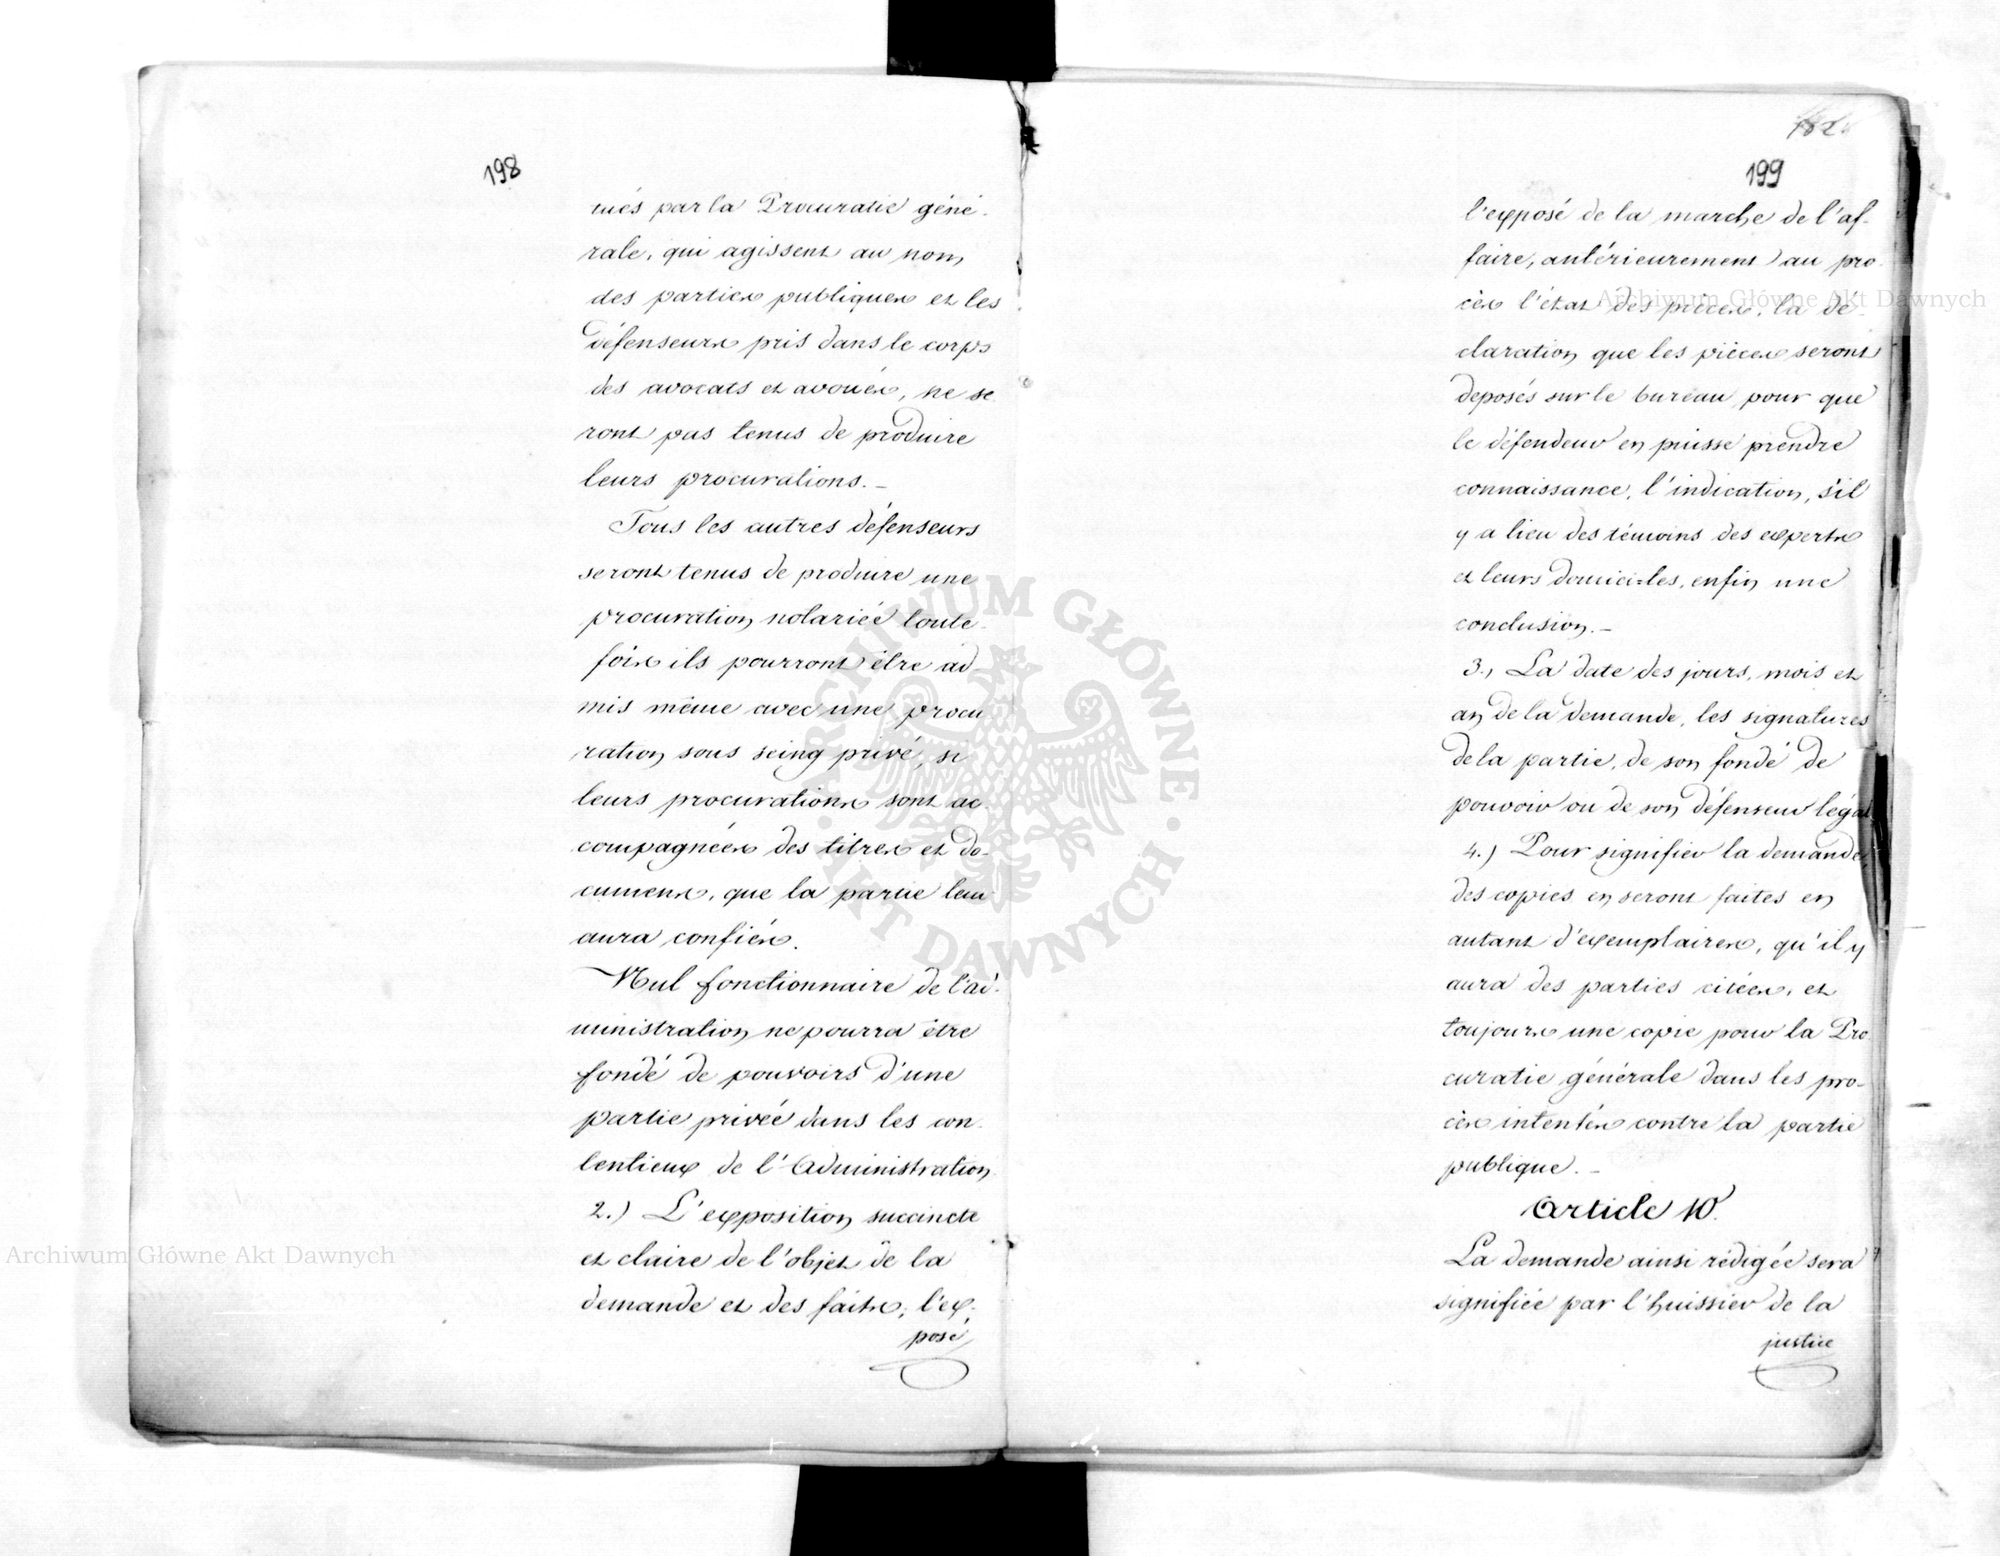 198
tués par la Procuratie géné-
rale, qui agissent au nom
des parties publiques et les
défenseurs pris dans le corps
des avocats et avoués, ne se
ront pas tenus de produire
leurs procurations.-
Tous les autres défenseurs
seront tenus de produire une
procuration notariée toute-
fois ils pourront être ad-
mis même avec une procu
ration sous seing privé, si
leurs procurations sont ac-
compagnées des titres et do-
cumens, que la partie leur
aura confiés.
Nul fonctionnaire de l'ad-
ministration ne pourra être
fondé de pouvoirs d'une
partie privée dans les con-
tentieux de l'Administration
2.) L'exposition succincte
et claire de l'objet de la
demande et des faits, l'ex-
posé
199
l'exposé de la marche de l'af-
faire, antérieurement au pro-
cès l'état des pièces, la dé-
claration que les pièces seront
deposés sur le bureau pour que
le défendeur en puisse prendre
connaissance, l'indication, s'il
y a lieu des témoins des experts
et leurs domici=les, enfin une
conclusion.-
3., La date des jours, mois et
an de la demande, les signatures
de la partie, de son fondé de
pouvoir ou de son défenseur légal
4.) Pour signifier la demande,
des copies en seront faites en
autant d'exemplaires, qu'il y
aura des parties citées, et
toujours une copie pour la Pro
curatie générale dans les pro-
cès intentés contre la partie
publique.-
Article 10.
La demande ainsi rédigée sera
signifiée par l'huissier de la
justice
Archiwum Główne Akt Dawnych
Archiwum Główne Akt Dawnych
ARCHIWUM GŁÓWNE · AKT DAWNYCH ·